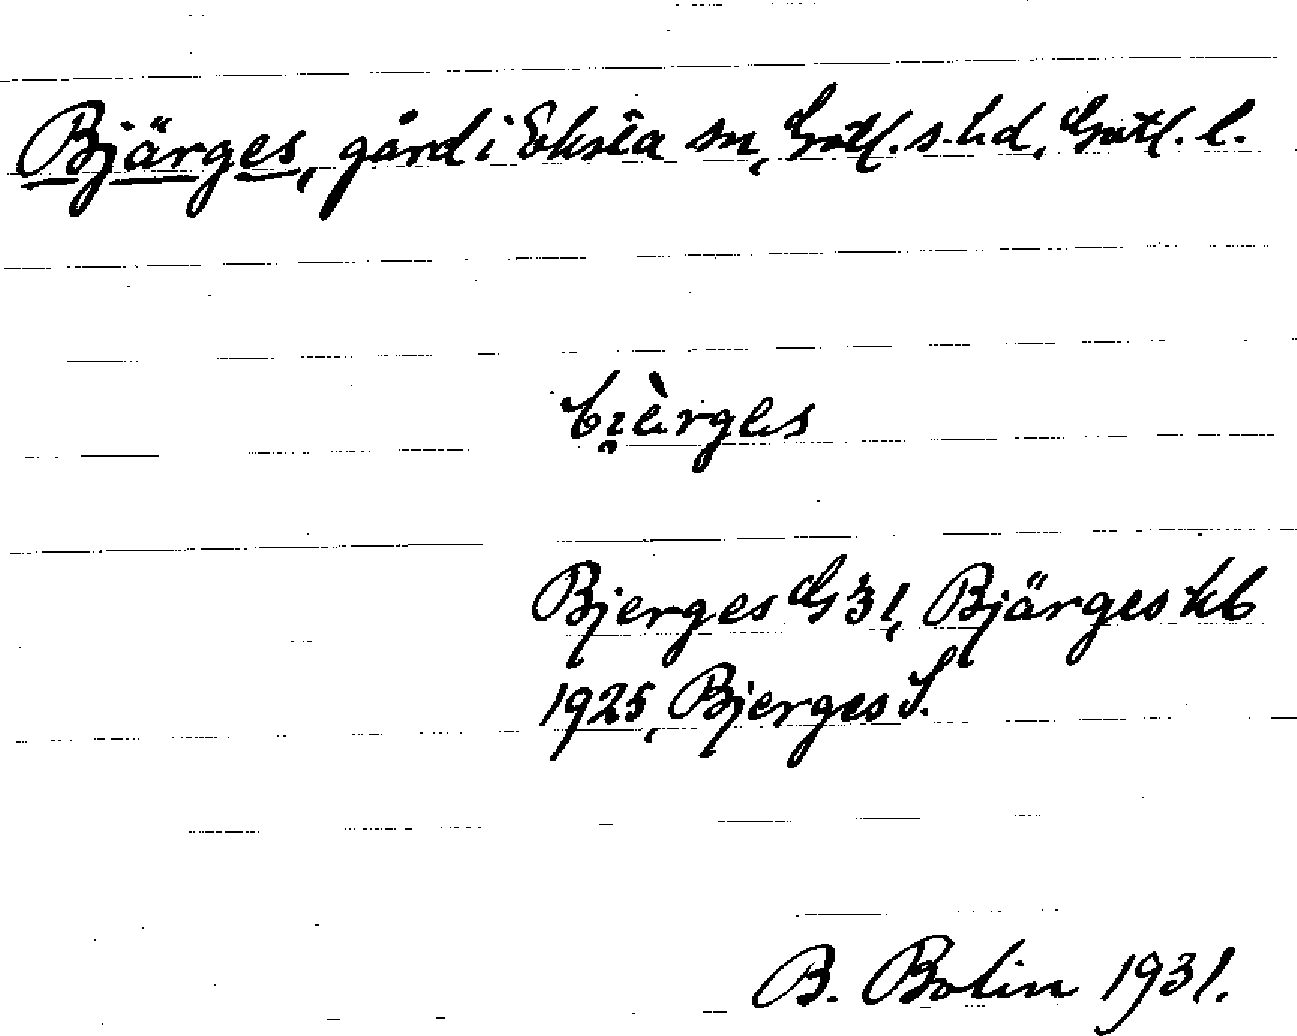 Bjärges, gård i Eksta sn, Gotl. s. hd, Gotl. l.
bi̯èrges
Bjerges G 31, Bjärges kb
1925, Bjerges S.
B. Bolin 1931.